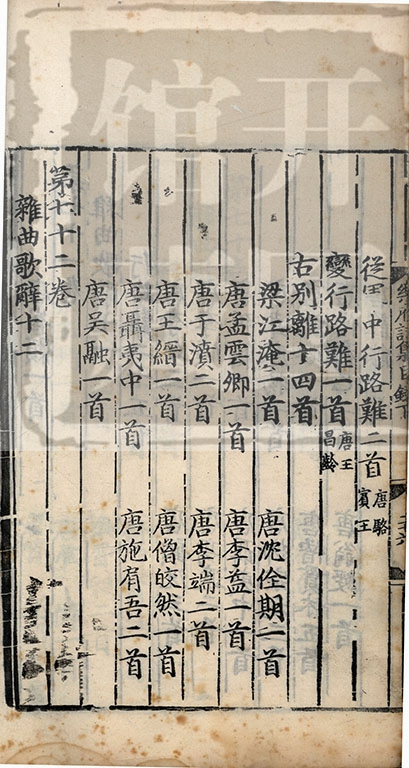 樂府詩集目錄下
從軍中行路難二首唐駱賓王
變行路難一首唐王昌齡
古別離十四首
梁江淹一首 唐沈佺期二首
唐孟雲卿一首 唐李益一首
唐于濆二首 唐李端二首
唐王縉一首 唐僧皎然一首
唐聶夷中一首 唐施肩吾二首
唐吳融一首
第七十二卷
雜曲歌辭十二